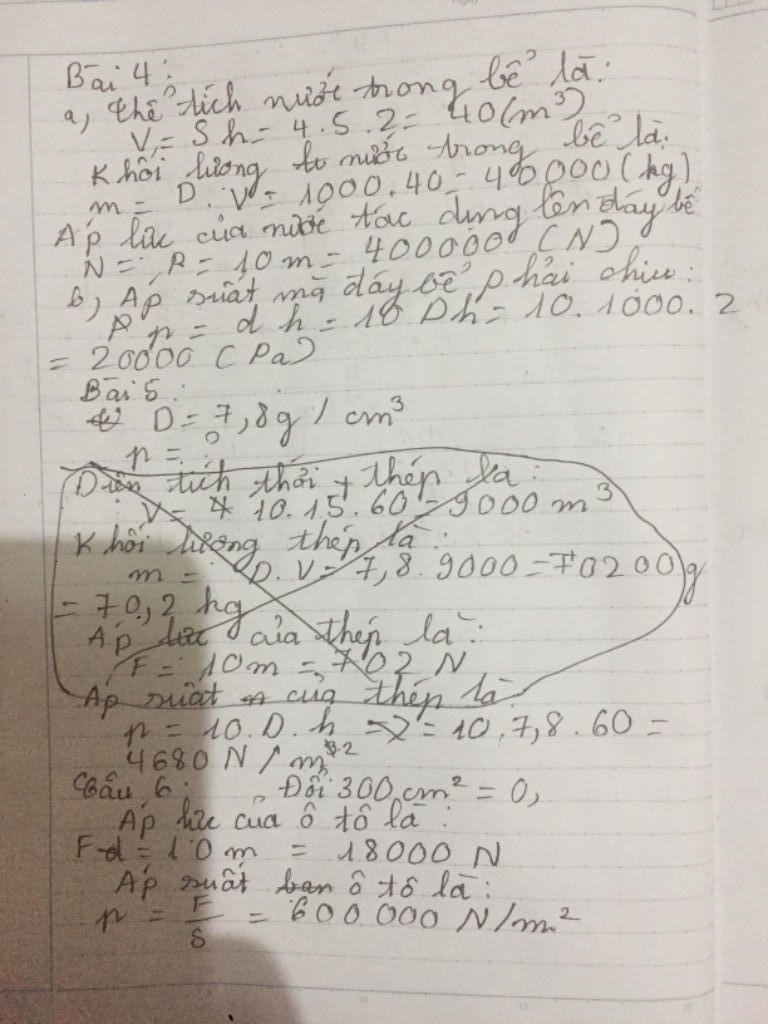 Bài 4:
a, Thể tích nước trong bể là:
V = S h = 4 . 5 . 2 = 40 (m³)
Khối lượng nước trong bể là:
m = D . V = 1000 . 40 = 40000 (kg)
Áp lực của nước tác dụng lên đáy bể
N = P = 10 m = 400000 (N)
b, Áp suất mà đáy bể phải chiu:
p = d h = 10 Dh = 10 . 1000 . 2
= 20000 (Pa)
Bài 5:
D = 7,8g / cm³
p = ?
Diện tích thỏi thép là:
V = 10 . 15 . 60 = 9000 m³
Khối lượng thép là:
m = D . V = 7,8 . 9000 = 70200 g
= 70,2 kg
Áp lực của thép là:
F = 10m = 702 N
Áp suất của thép là:
p = 10 . D . h = 10 . 7,8 . 60 =
4680 N / m²
Câu 6: Đổi 300 cm² = 0,
Áp lực của ô tô là:
F = 10 m = 18000 N
Áp suất ô tô là:
p = F/S = 600 000 N/m²